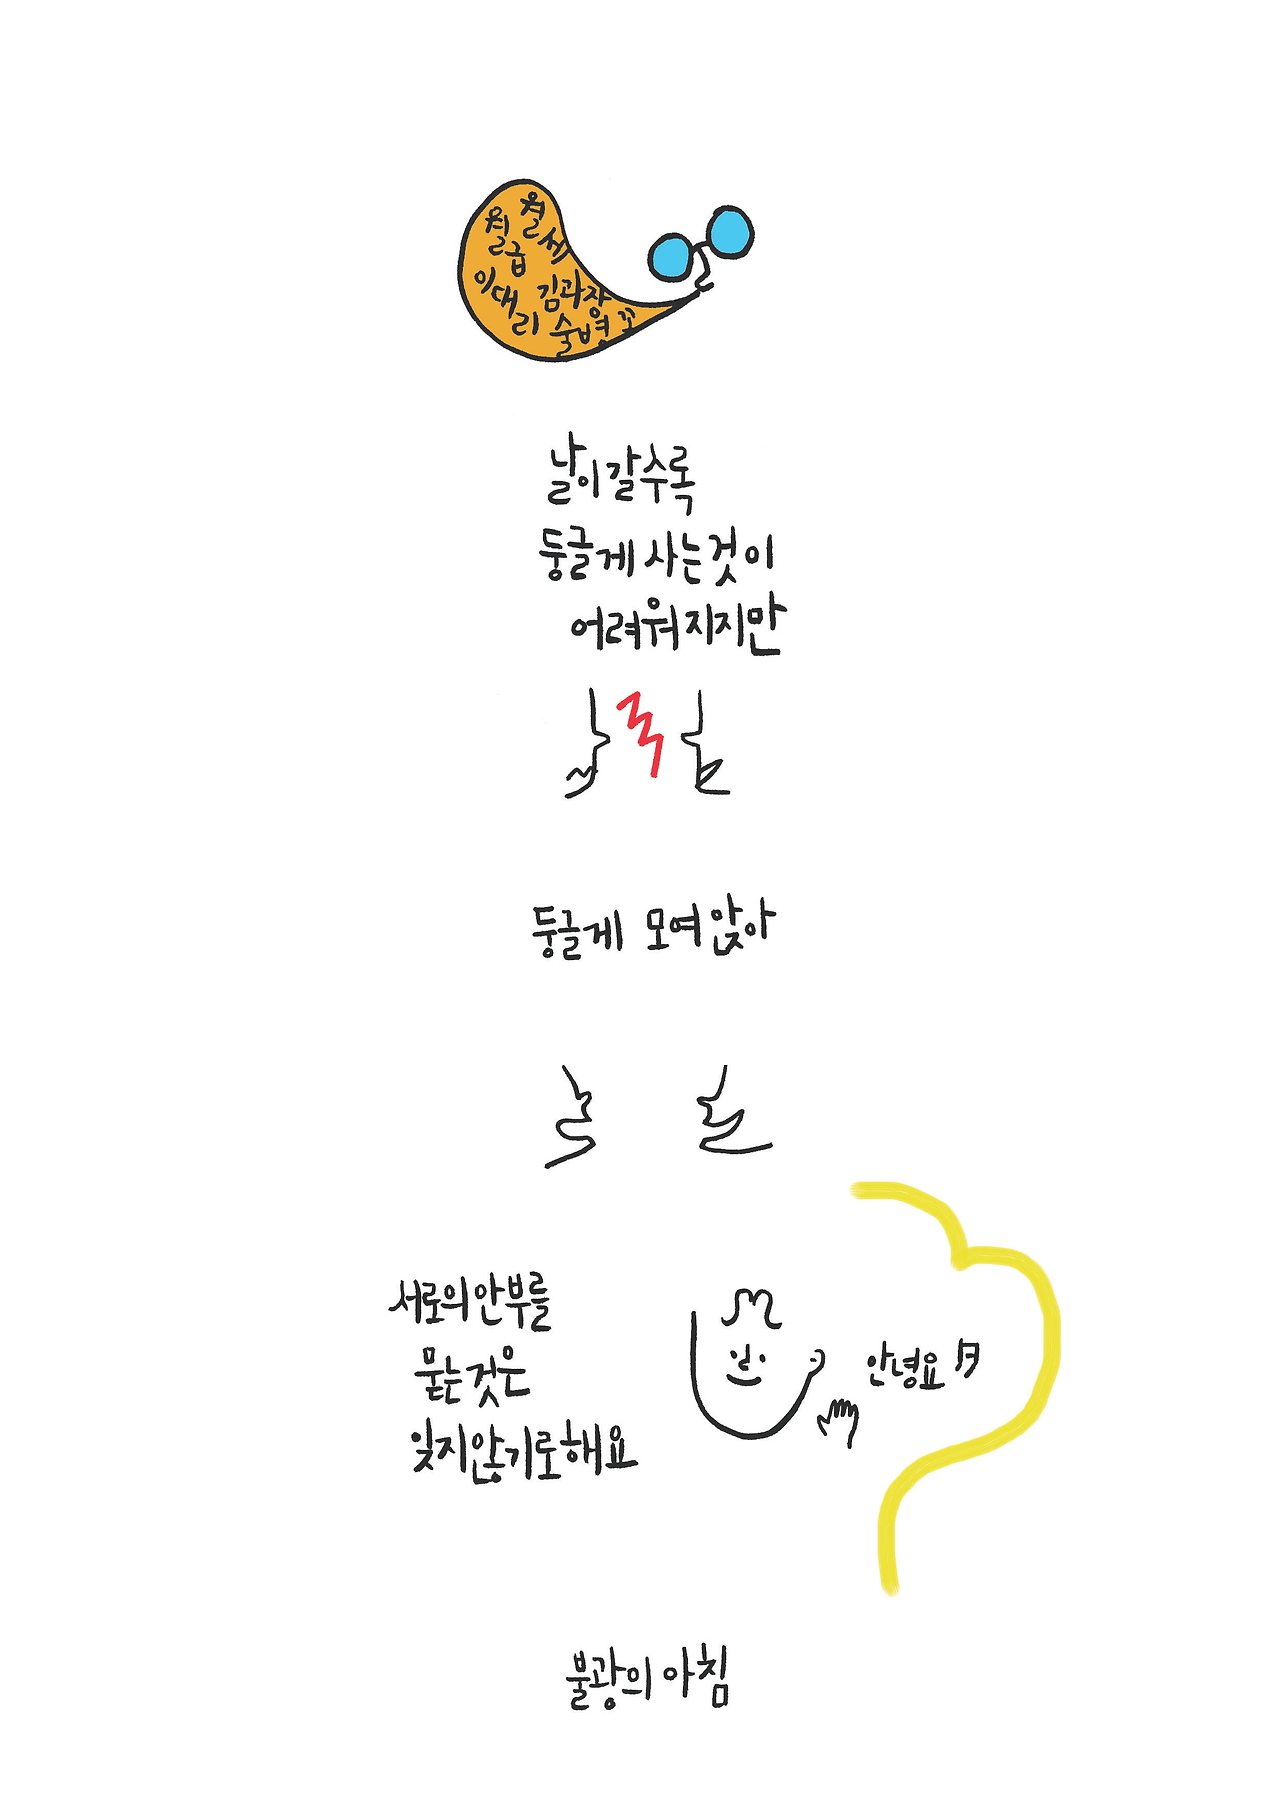 월세
월급
이대리
김과장
술병
날이갈수록
둥글게 사는것이
어려워지지만
둥글게 모여앉아
서로의안부를
묻는것은
잊지않기로해요
안녕요
불광의 아침